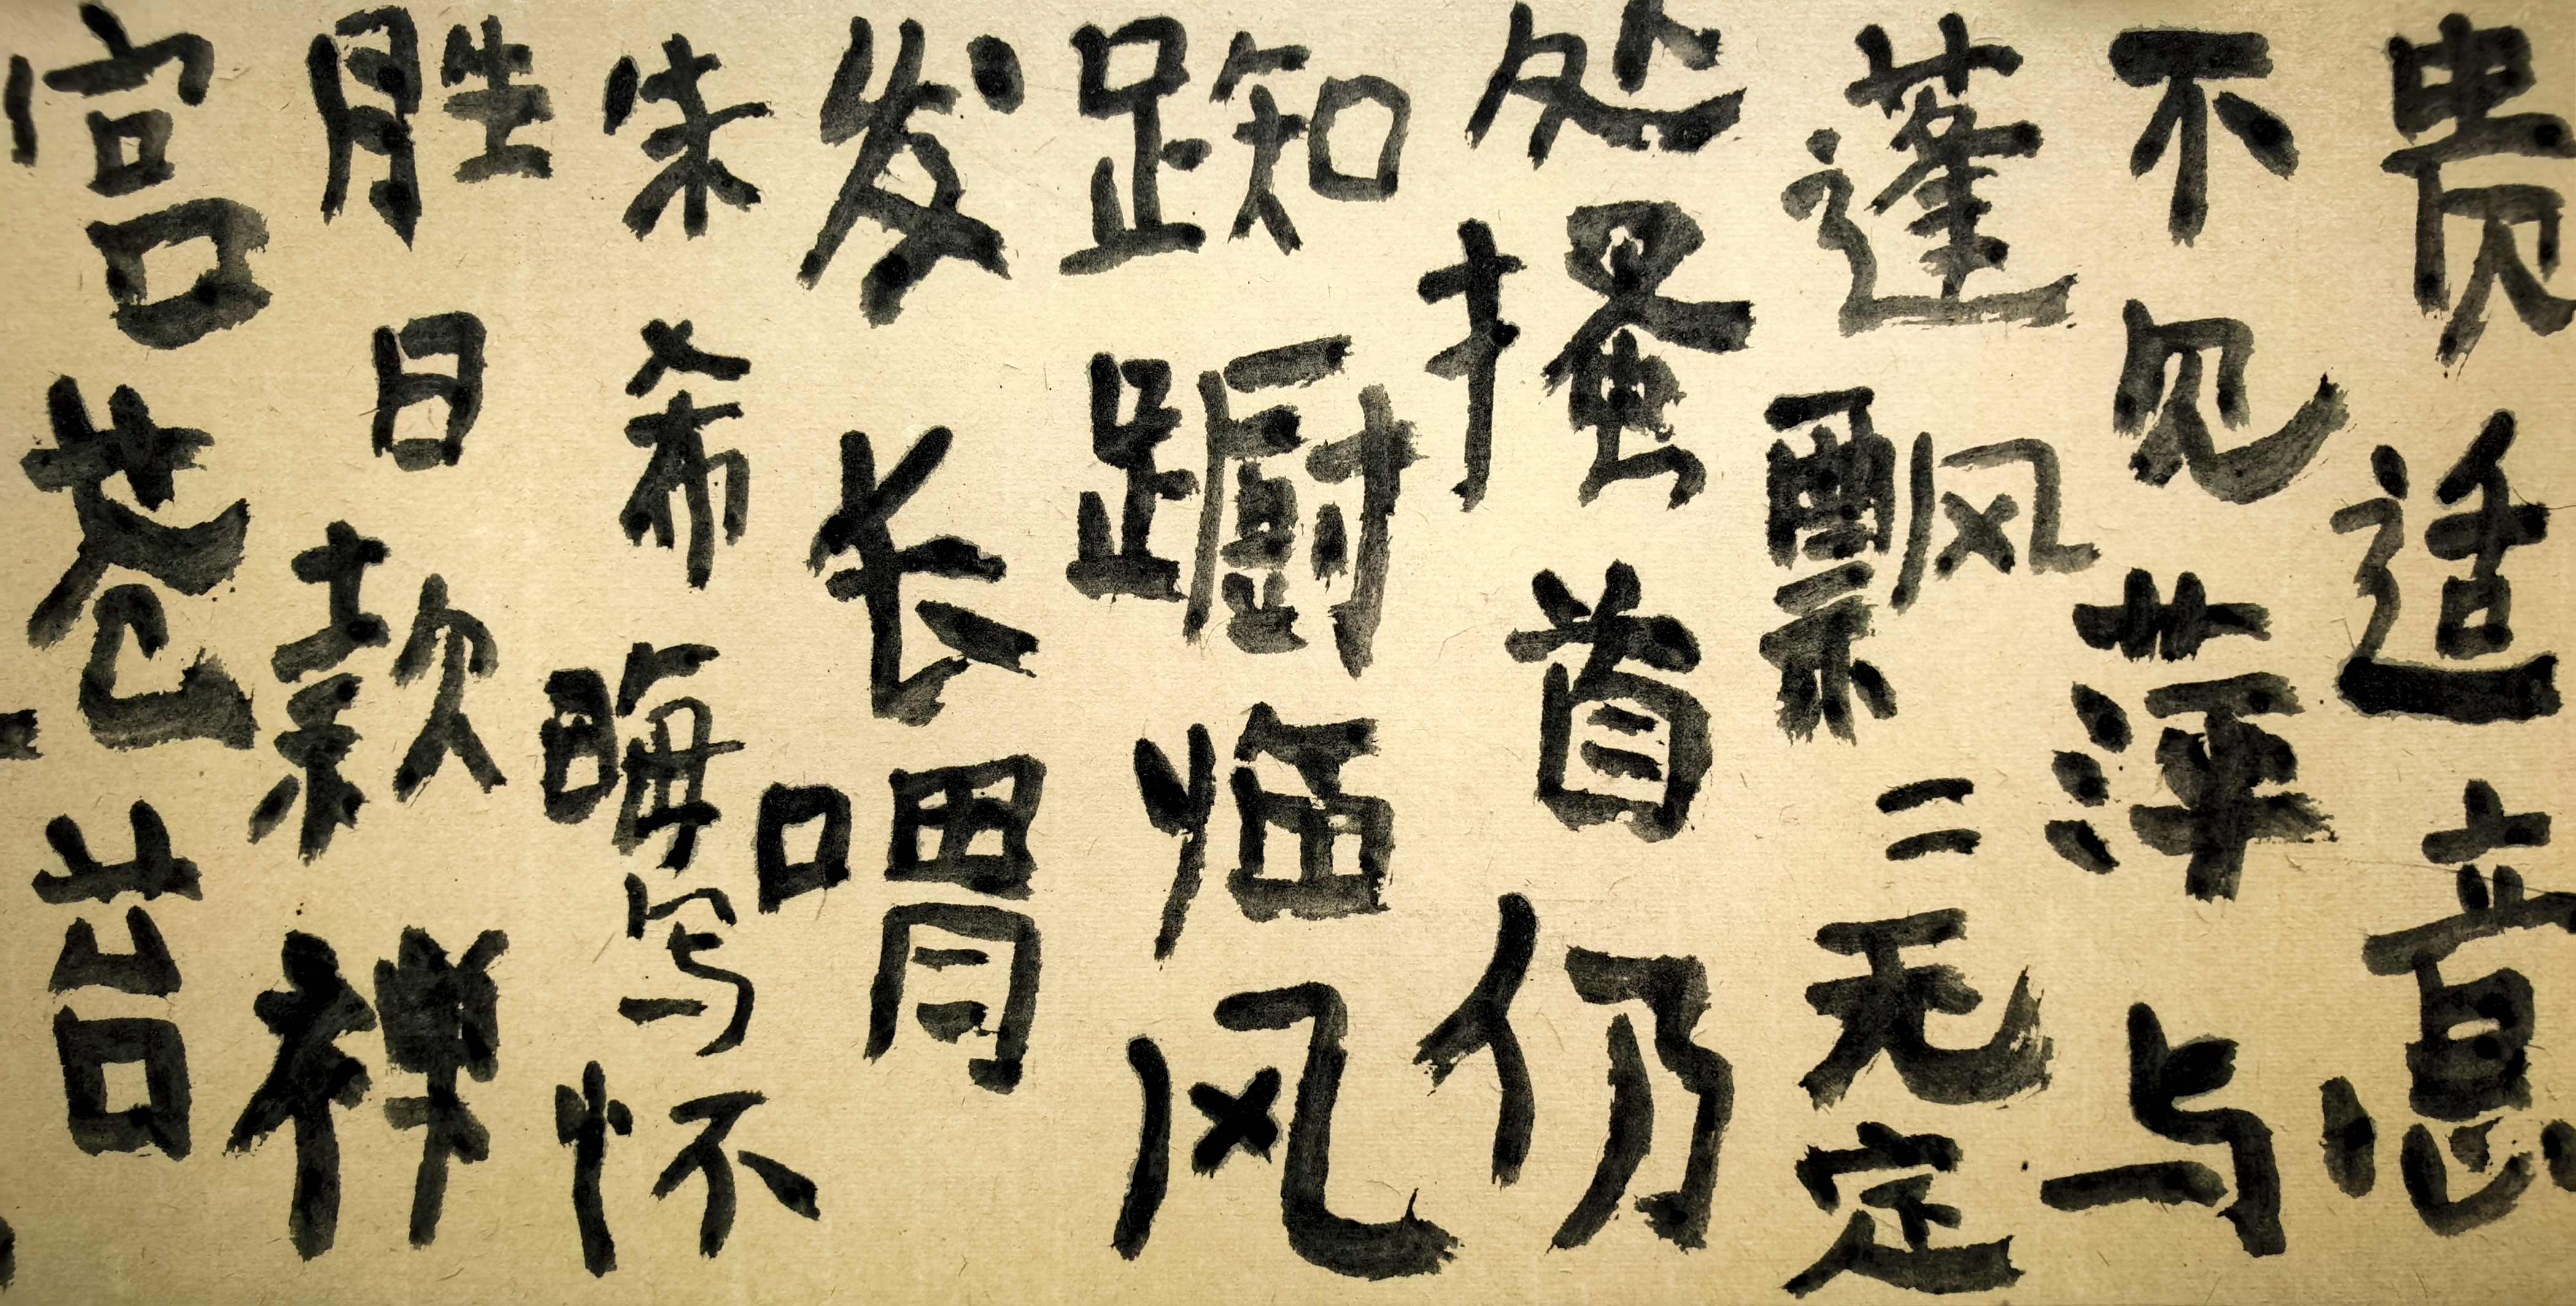 贵适意
不见萍与
蓬飘二无定
处搔首仍
踟蹰临风
发长喟
朱希晦写怀
胜日款禅
宫苍岩